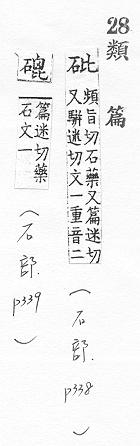 28類 篇
砒 頻旨切石藥又篇迷切
又駢迷切文一重音二
(石部 p338)
磇 篇迷切藥
石文一
(石部 p339)